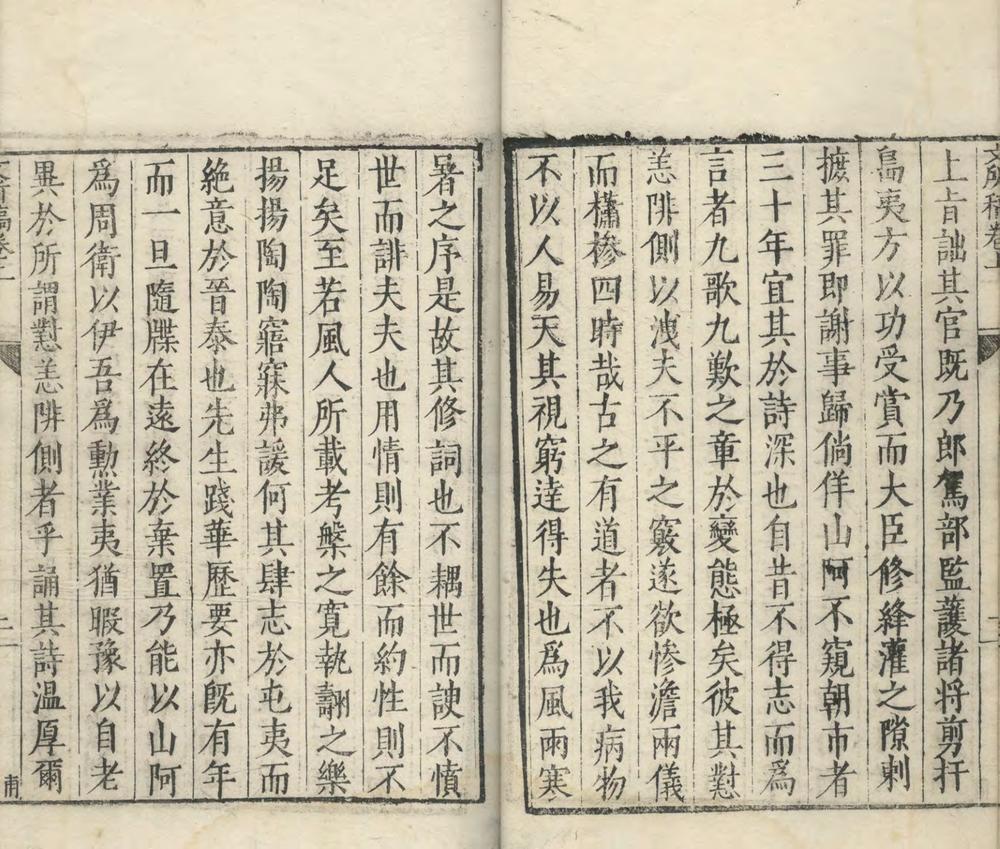 上旨詘其官既乃郎駕部監護諸将剪扞
島夷方以功受賞而大臣修絳灌之隙剌
摭其罪即謝事歸倘佯山阿不窺朝市者
三十年宜其於詩深也自昔不得志而為
言者九歌九歎之章於變態極矣彼其懟
恚陫側以洩夫不平之竅遂欲慘澹兩儀
而橚椮四時哉古之有道者不以我病物
不以人易天其視窮逹得失也為風雨寒
暑之序是故其修詞也不耦世而諛不憤
世而誹夫夫也用情則有餘而約性則不
足矣至若風人所載考槃之寛執翿之樂
揚揚陶陶寤寐弗諼何其肆志於屯夷而
絶意於晉泰也先生踐華歷要亦旣有年
而一旦隨牒在遠終於棄置乃能以山阿
為周衛以伊吾為勲業夷猶暇豫以自老
異於所謂懟恚陫側者乎誦其詩温厚爾
二
甫